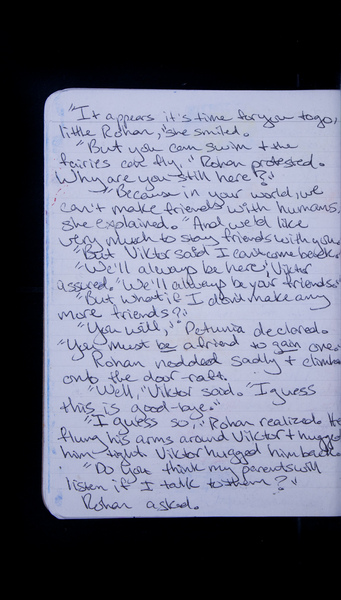 "It appears it's time for you to go,
little Rohan," she smiled.
"But you can swim + the
fairies can fly," Rohan protested.
Why are you still here?"
"Because in your world, we
can't make friends with humans,
she explained. "And we'd like
very much to stay friends with you.
"But Viktor said I can't come back.
"We'll always be here," Viktor
assured. "We'll always be your friends."
"But what if I don't make any
more friends?"
"You will," Petunia declared.
"You must be a friend to gain one.
Rohan nodded sadly + climbe
onto the door-raft.
"Well," Viktor said. "I guess
this is good-bye."
"I guess so," Rohan realized. He
flung his arms around Viktor + hugged
him tight. Viktor hugged him back.
"Do you think my parents will
listen if I talk to them?"
Rohan asked.